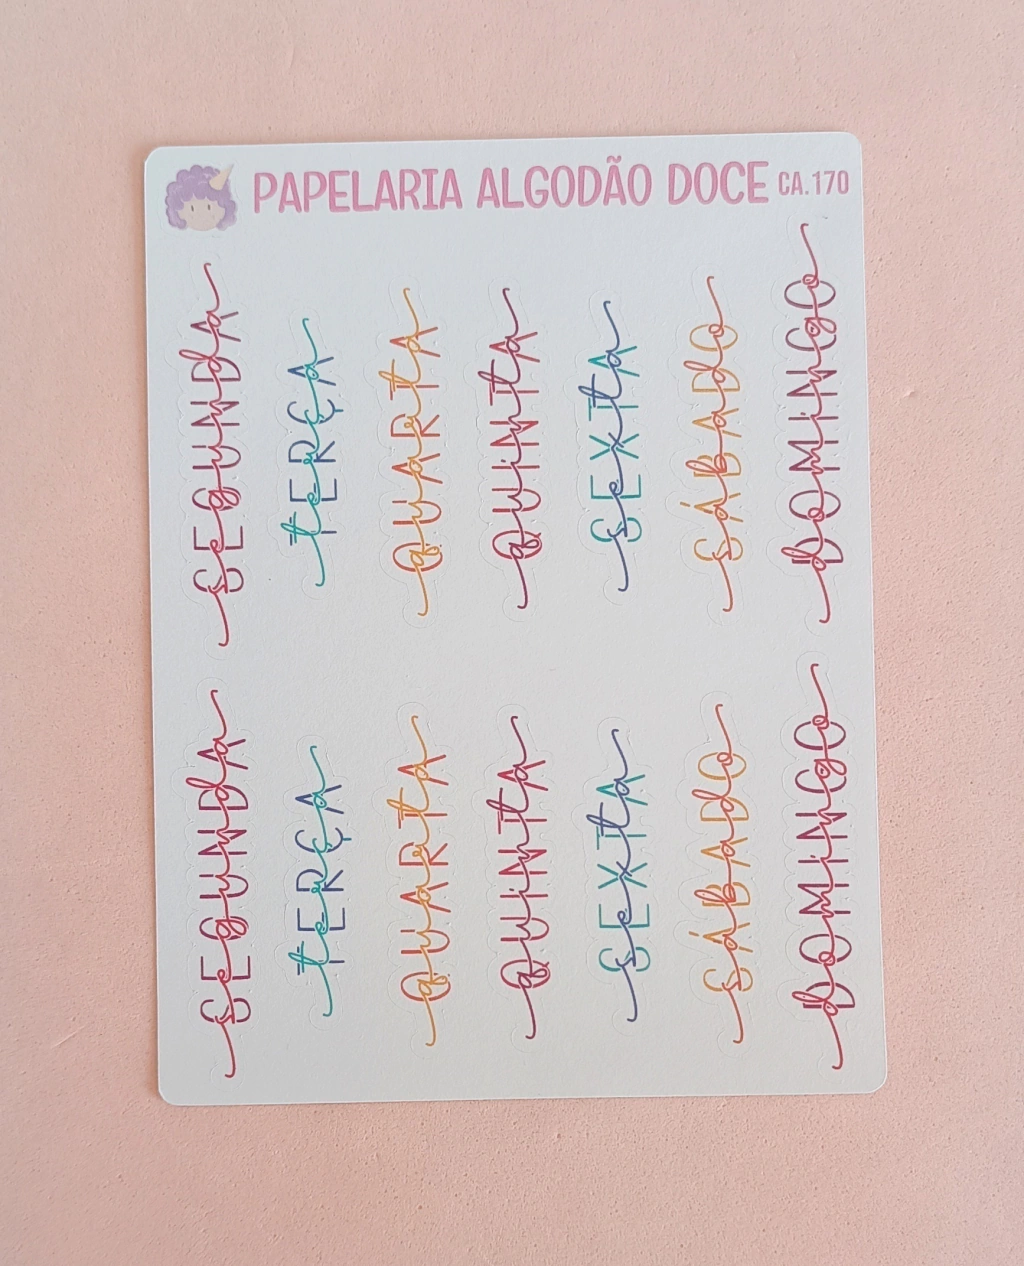 PAPELARIA ALGODÃO DOCE CA.170
SEGUNDA segunda
TERÇA terça
QUARTA quarta
QUINTA quinta
SEXTA sexta
SÁBADO sábado
DOMINGO domingo
SEGUNDA segunda
TERÇA terça
QUARTA quarta
QUINTA quinta
SEXTA sexta
SÁBADO sábado
DOMINGO domingo